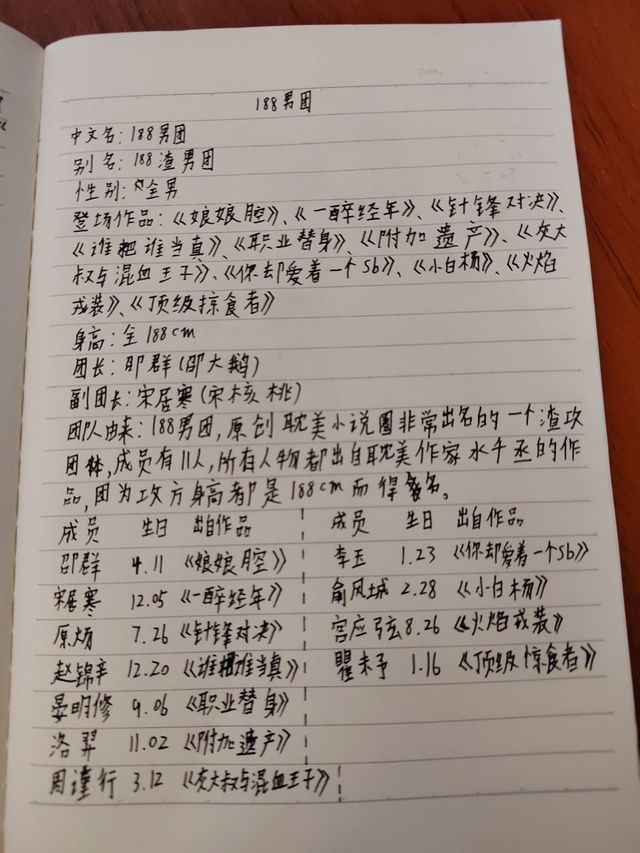 Date.
188男团
中文名:188男团
别名:188渣男团
性别:全男
登场作品:《娘娘腔》、《一醉经年》、《针锋对决》、
《谁把谁当真》、《职业替身》、《附加遗产》、《灰大
叔与混血王子》、《你却爱着一个sb》、《小白杨》、《火焰
戎装》、《顶级掠食者》
身高:全188cm
团长:邵群(邵大鹅)
副团长:宋居寒(宋核桃)
团队由来:188男团,原创耽美小说圈非常出名的一个渣攻
团体,成员有11人,所有人物都出自耽美作家水千丞的作
品,因为攻方身高都是188cm而得名。
成员 生日 出自作品 成员 生日 出自作品
邵群 4.11 《娘娘腔》 李玉 1.23 《你却爱着一个sb》
宋居寒 12.05 《一醉经年》 俞风城 2.28 《小白杨》
原炀 7.26 《针锋对决》 宫应弦 8.26 《火焰戎装》
赵锦辛 12.20 《谁把谁当真》 瞿末予 1.16 《顶级掠食者》
晏明修 9.06 《职业替身》
洛羿 11.02 《附加遗产》
周谨行 3.12 《灰大叔与混血王子》